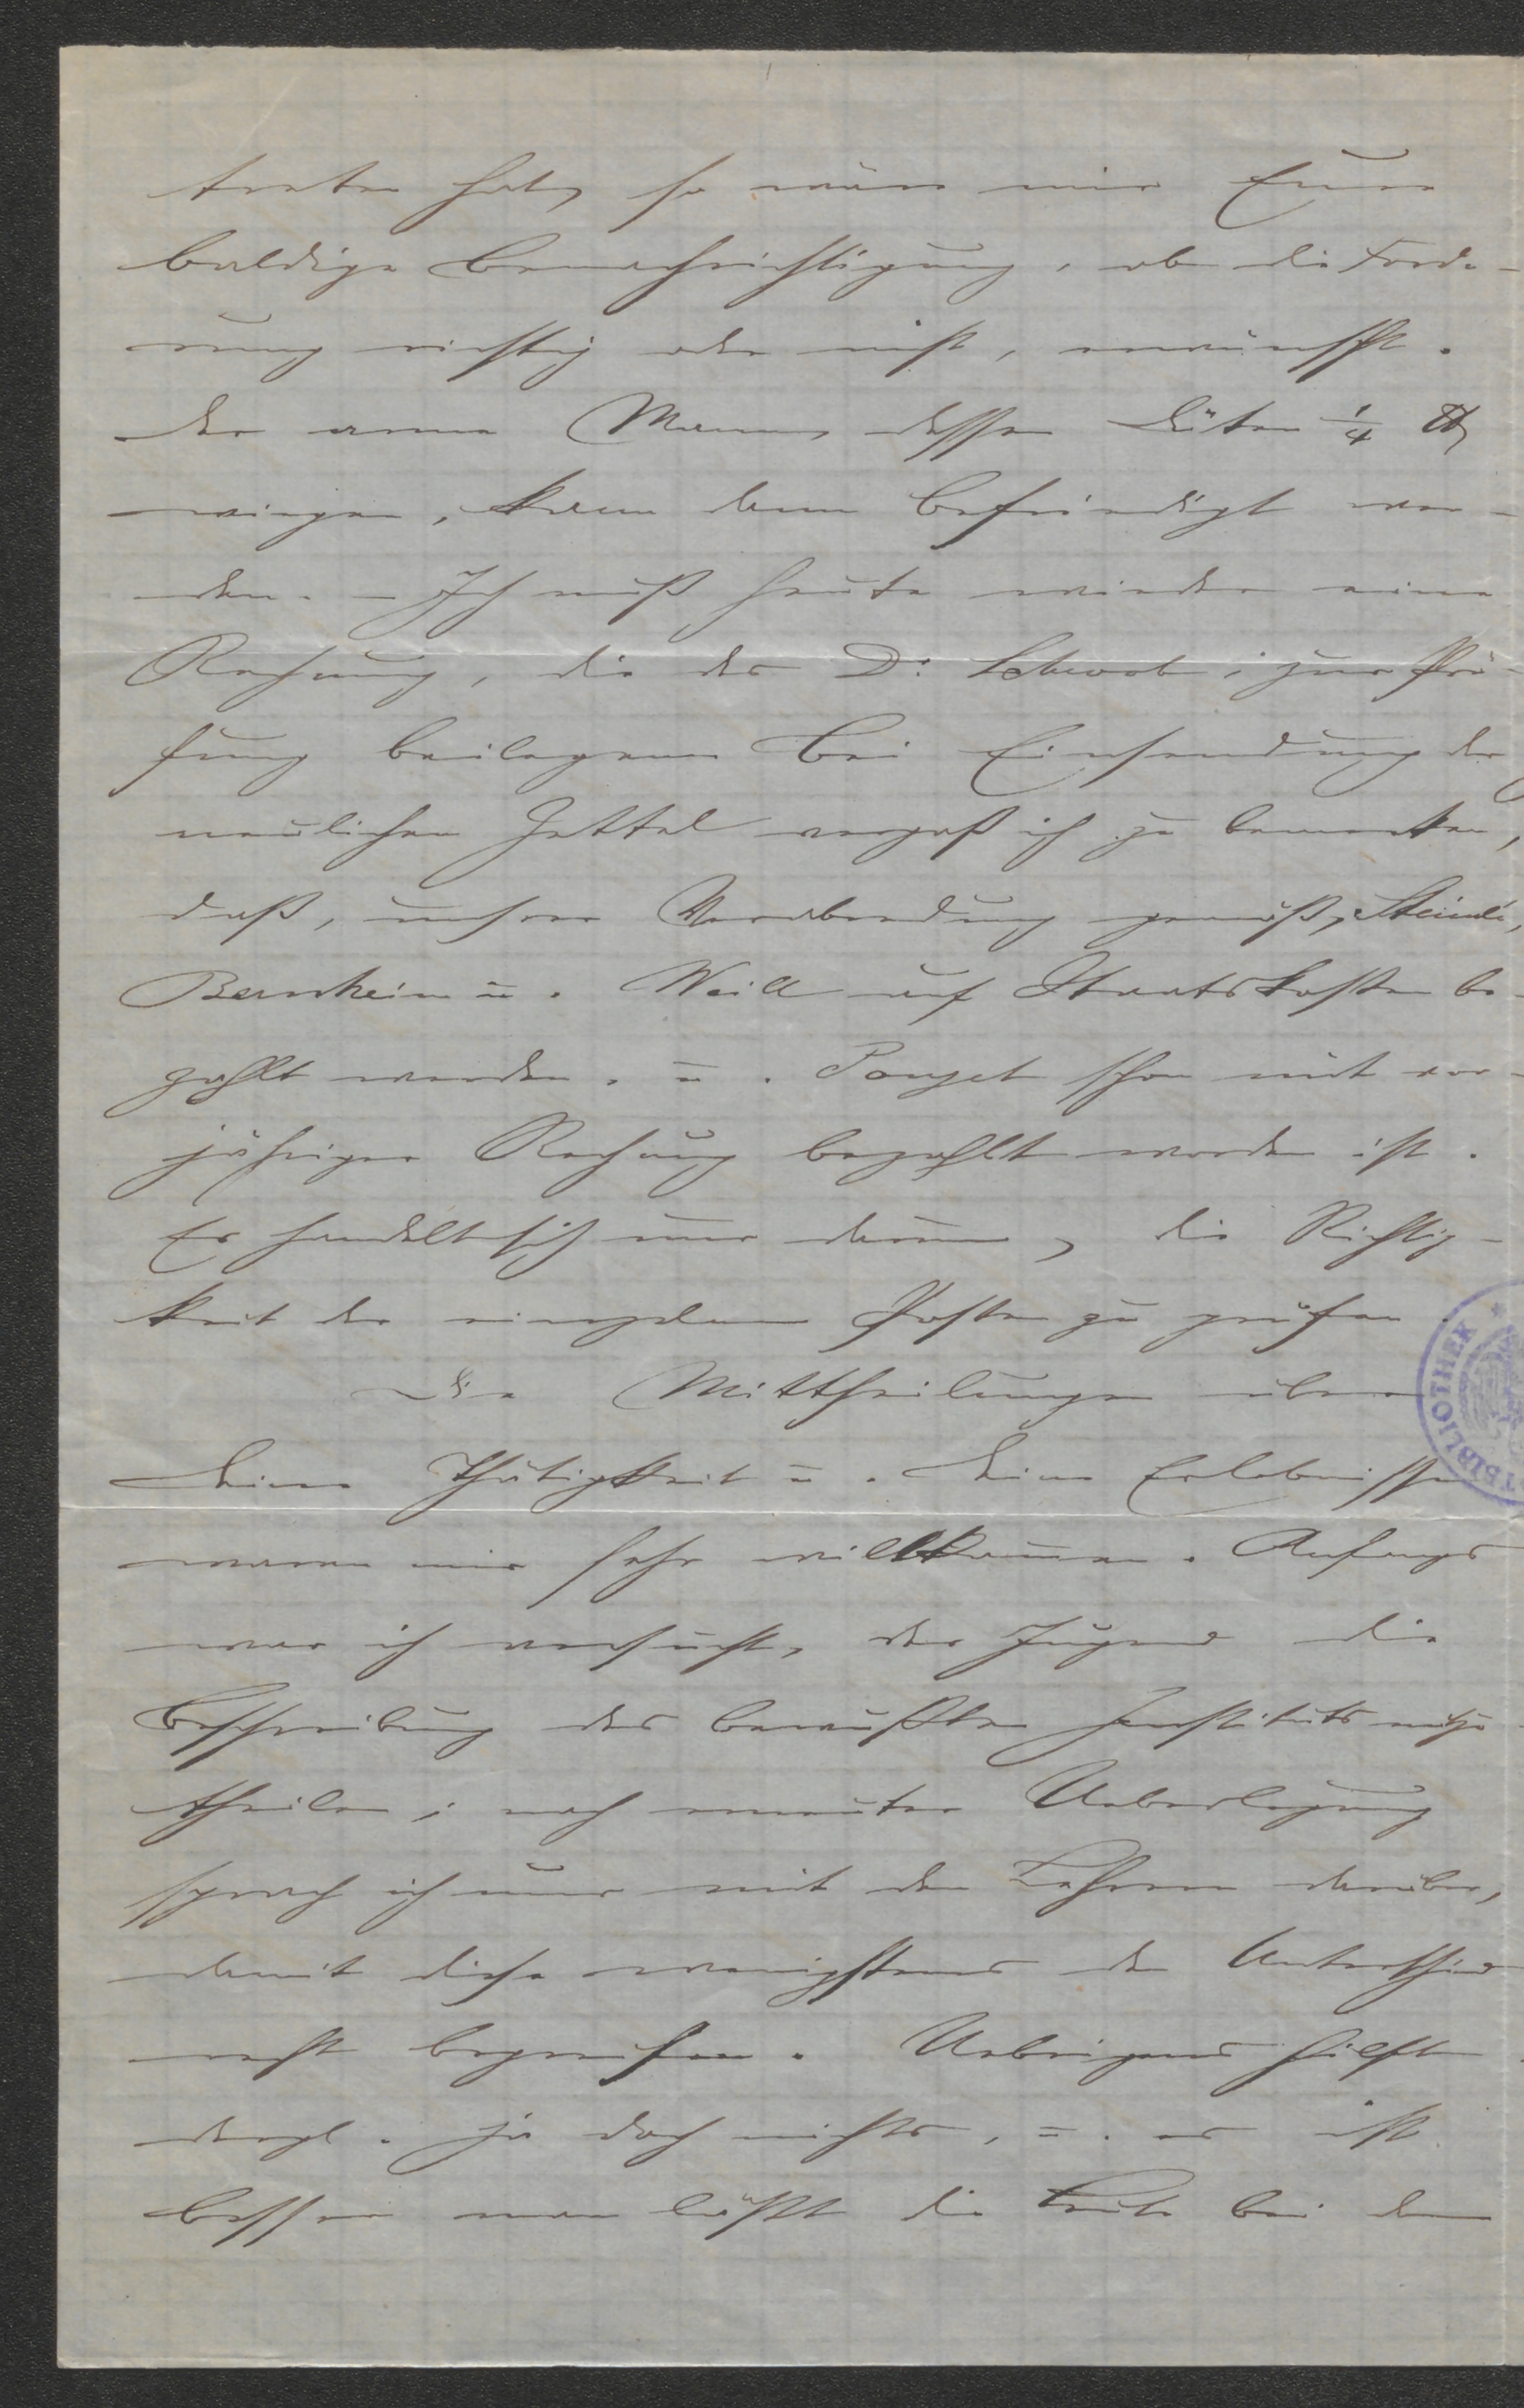 treten hat, so wäre mir Eure
baldige Benachrichtigung, ob die Forde-
rung richtig oder nicht, erwünscht.
Der arme Mann, dessen Düten ¼ ℔
wiegen, kann dann befriedigt wer-
den. – Ich muß heute wieder eine
Rechnung, die des Dr. Schwob, zur Prü-
fung beilegen. Bei Einsendung der
neulichen Zettel vergaß ich zu bemerken,
daß, unserer Verabredung gemäß,
Bernheim u. Weill auf Staatskosten be-
zahlt werden, u. Pouget schon mit vor-
jähriger Rechnung bezahlt worden ist.
Es handelt sich nur darum, die Richtig-
keit der einzelnen Posten zu prüfen.
Die Mittheilungen über
Deine Thätigkeit u. Deine Erlebnisse
waren mir sehr willkommen. Anfangs
war ich versucht, der Jugend die
Beschreibung des bewußten Instituts mitzu-
theilen; nach erneuter Ueberlegung
sprach ich nur mit den Lehrern darüber,
damit diese wenigstens den Unterschied
recht begreifen. Uebrigens hilft
dergl. ja doch nichts, u. es ist
besser man läßt die Leute bei dem
BIBLIOTHEK